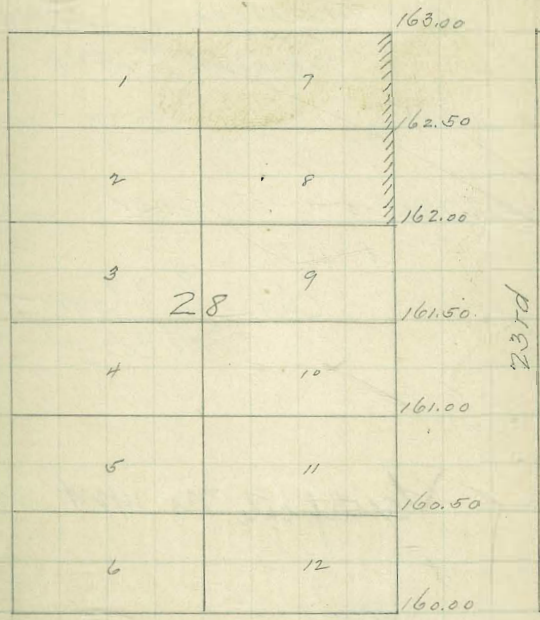 163.00
1 7
162.50
2 8
162.00
3 9
28
161.50
23rd
4 10
161.00
5 11
160.50
6 12
160.00